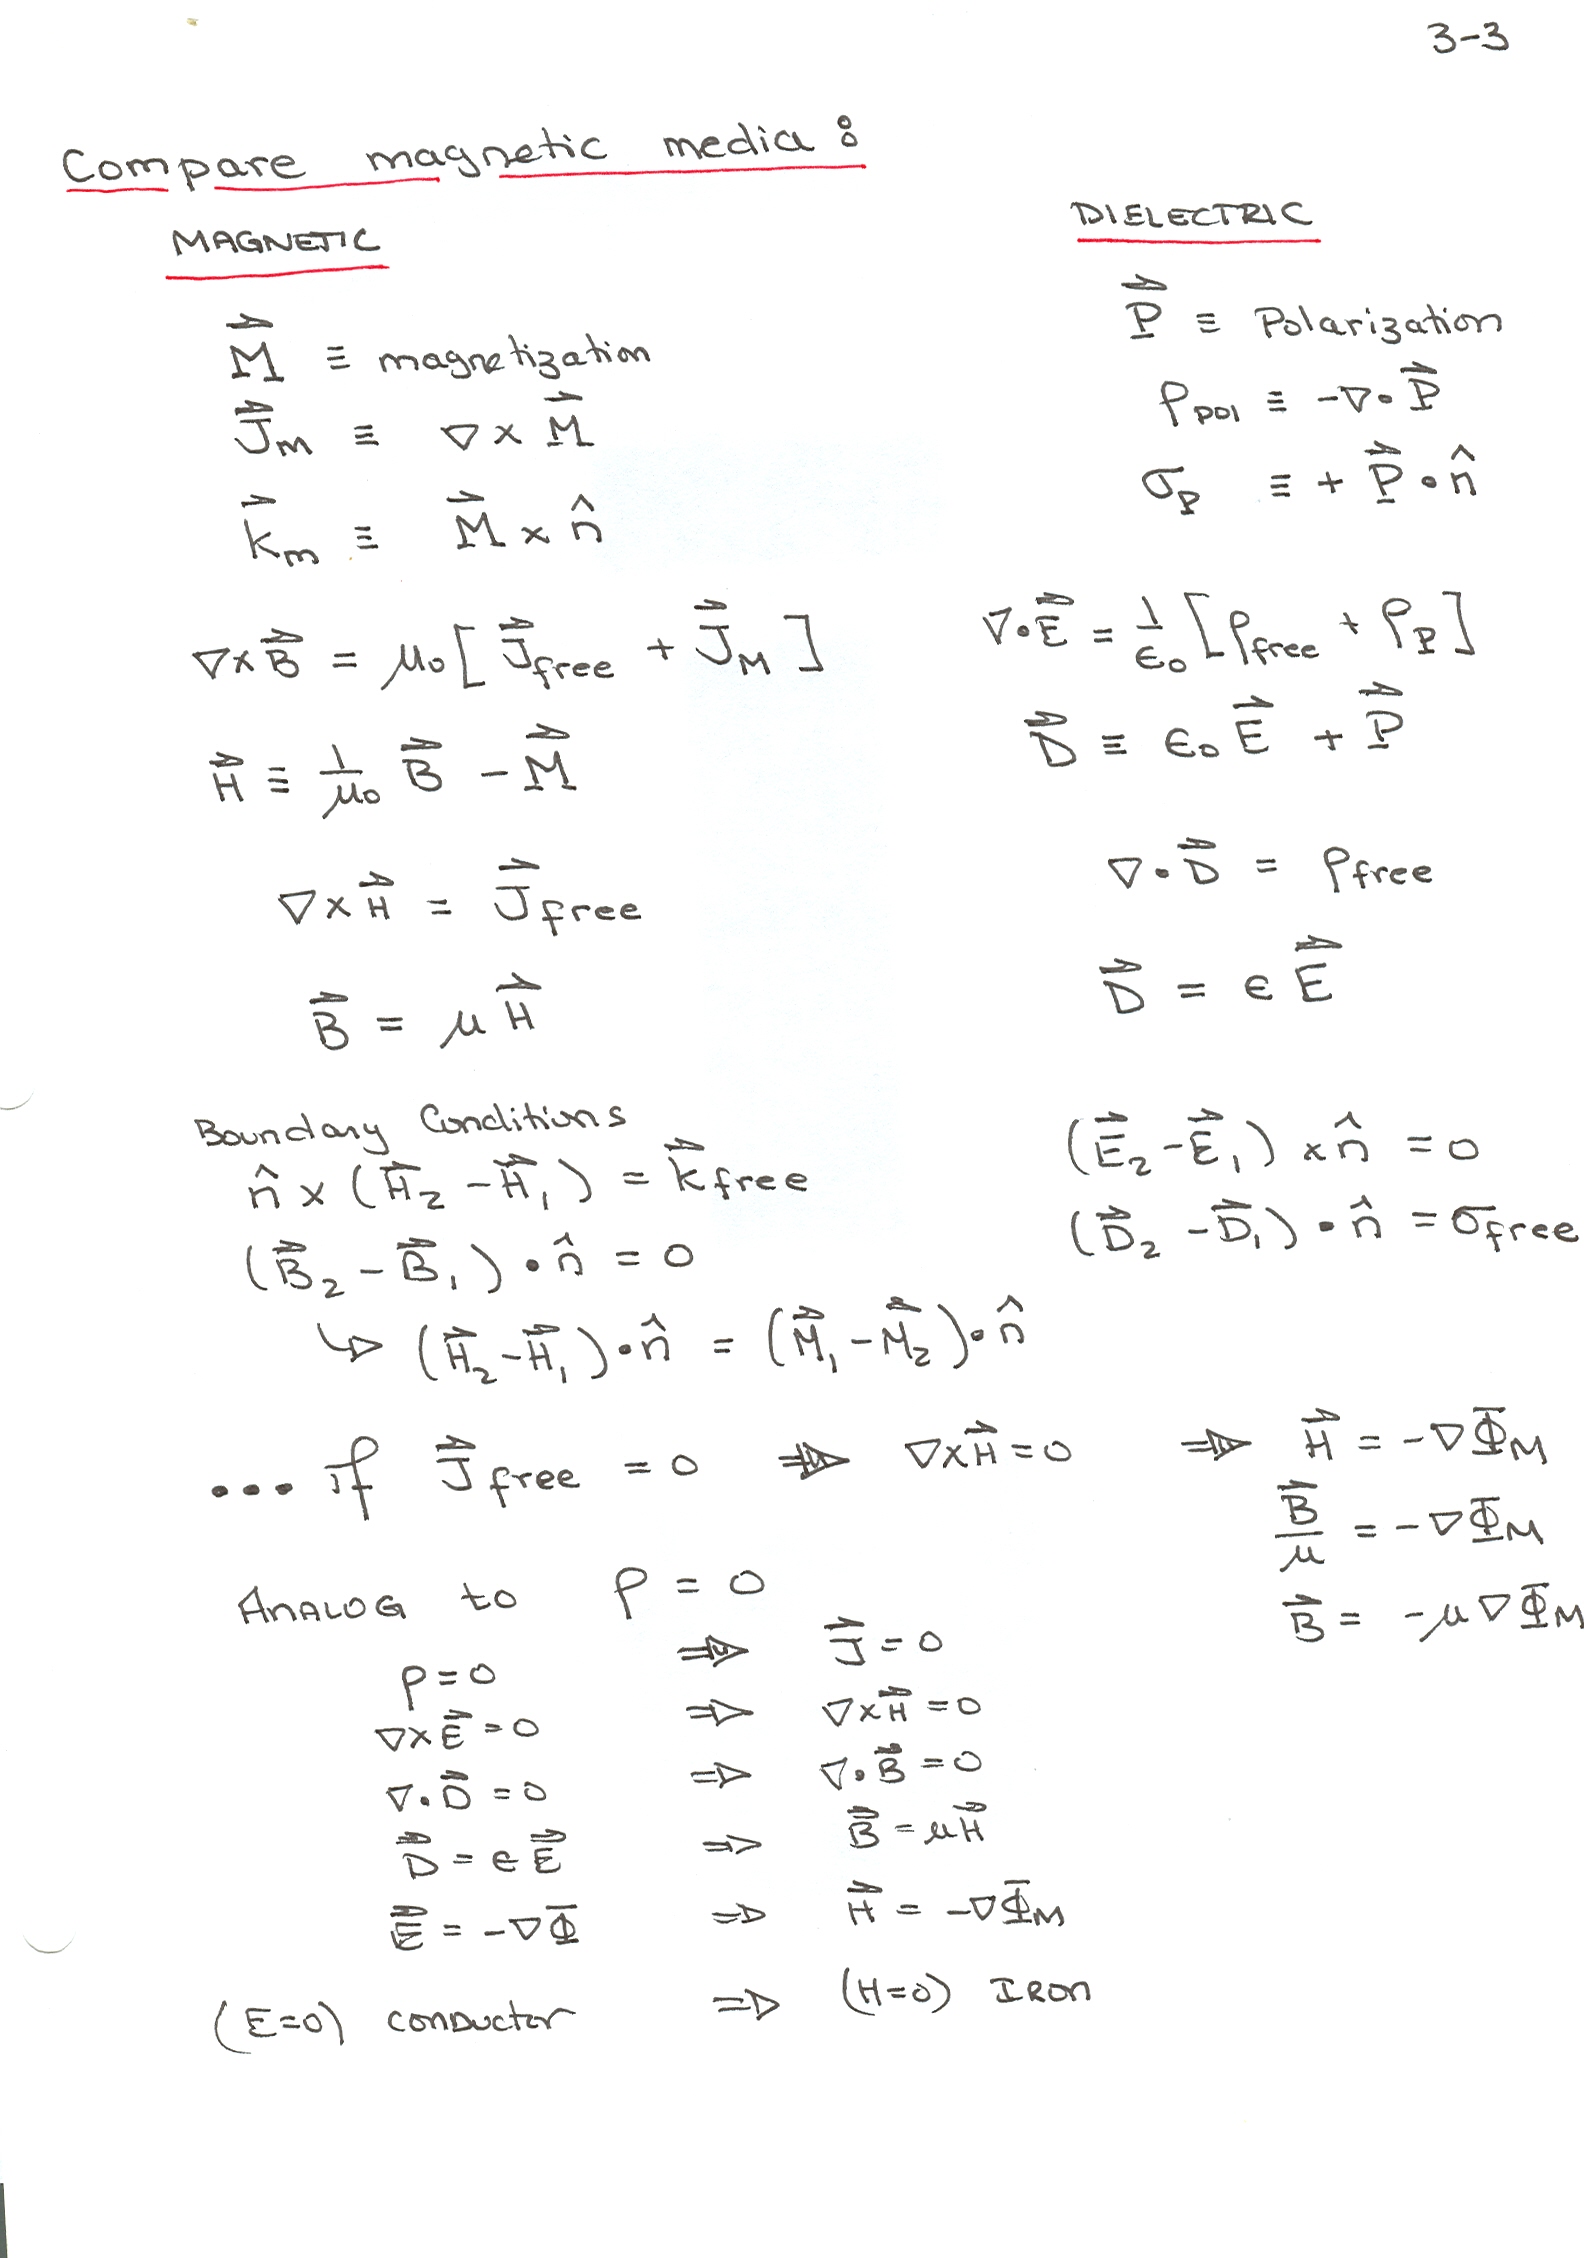 3-3
Compare magnetic media:
MAGNETIC
DIELECTRIC
M⃗ ≡ magnetization
P⃗ ≡ Polarization
J⃗m ≡ ∇ × M⃗
ρpol ≡ -∇•P⃗
K⃗m ≡ M⃗ × n̂
σp ≡ + P⃗•n̂
∇×B⃗ = μ₀[J⃗free + J⃗M]
∇•E⃗ = 1/ε₀ [ρfree + ρP]
H⃗ ≡ 1/μ₀ B⃗ - M⃗
D⃗ ≡ ε₀E⃗ + P⃗
∇×H⃗ = J⃗free
∇•D⃗ = ρfree
B⃗ = μH⃗
D⃗ = εE⃗
Boundary Conditions
n̂ × (H⃗₂ - H⃗₁) = K⃗free
(E⃗₂ - E⃗₁) × n̂ = 0
(B⃗₂ - B⃗₁)•n̂ = 0
(D⃗₂ - D⃗₁)•n̂ = σfree
↳ (H⃗₂ - H⃗₁)•n̂ = (M⃗₁ - M⃗₂)•n̂
... if J⃗free = 0 ⇒ ∇×H⃗ = 0 ⇒ H⃗ = -∇ΦM
B⃗/μ = -∇ΦM
B⃗ = -μ∇ΦM
ANALOG to ρ = 0
ρ=0 ⇒ J⃗=0
∇×E⃗=0 ⇒ ∇×H⃗=0
∇•D⃗=0 ⇒ ∇•B⃗=0
D⃗=εE⃗ ⇒ B⃗=μH⃗
E⃗=-∇Φ ⇒ H⃗=-∇ΦM
(E=0) conductor ⇒ (H=0) IRON